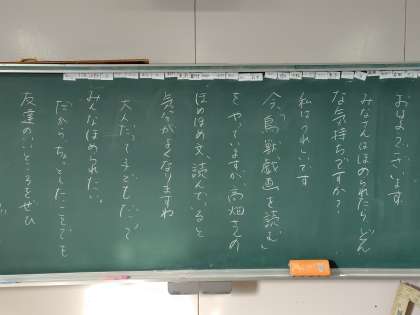 おはようございます
みなさんはほめられたらどん
な気持ちですか？
私はうれしいです
今、「鳥獣戯画を読む」
をやっていますが、高畑さんの
ほめほめ文、読んでいると
気分がよくなりますね
大人だって子どもだって
みんなほめられたい。
だからちょっとしたことでも
友達のいいところをぜひ